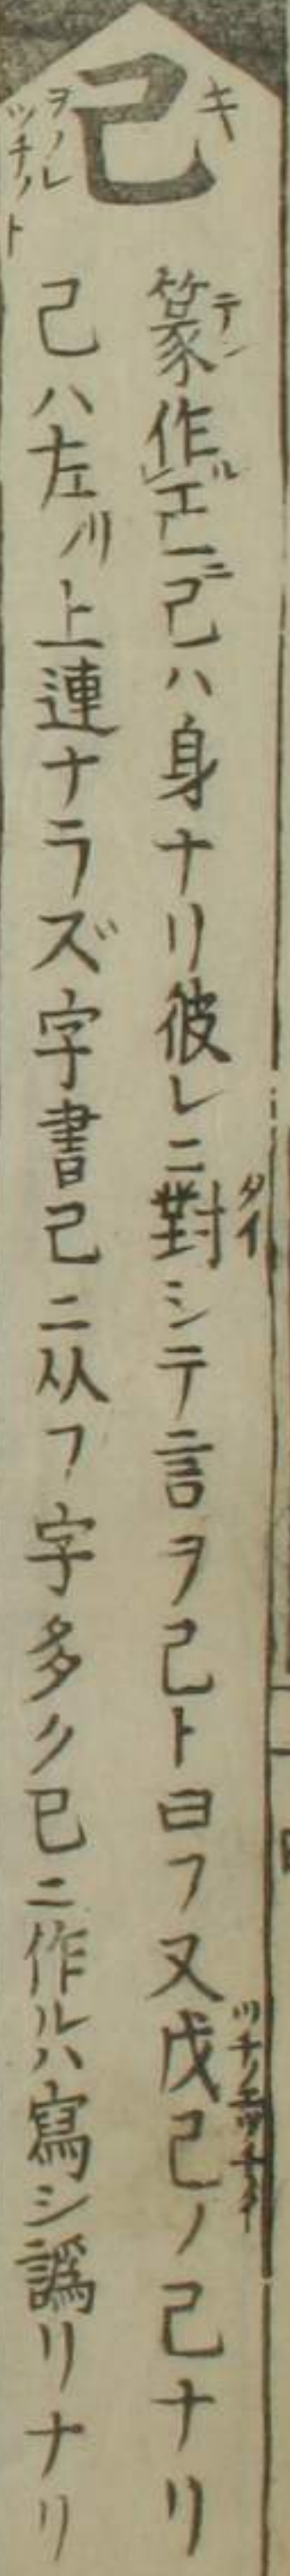 己
キ
ヲノレ
ツチノト
篆作ルニ己ハ身ナリ彼レニ對シテ言ヲ己ト曰フ又戊己ノ己ナリ
テン
タイ
己ハ左リノ上連ナラズ字書己ニ从フ字多ク巳ニ作ルハ寫シ譌リナリ